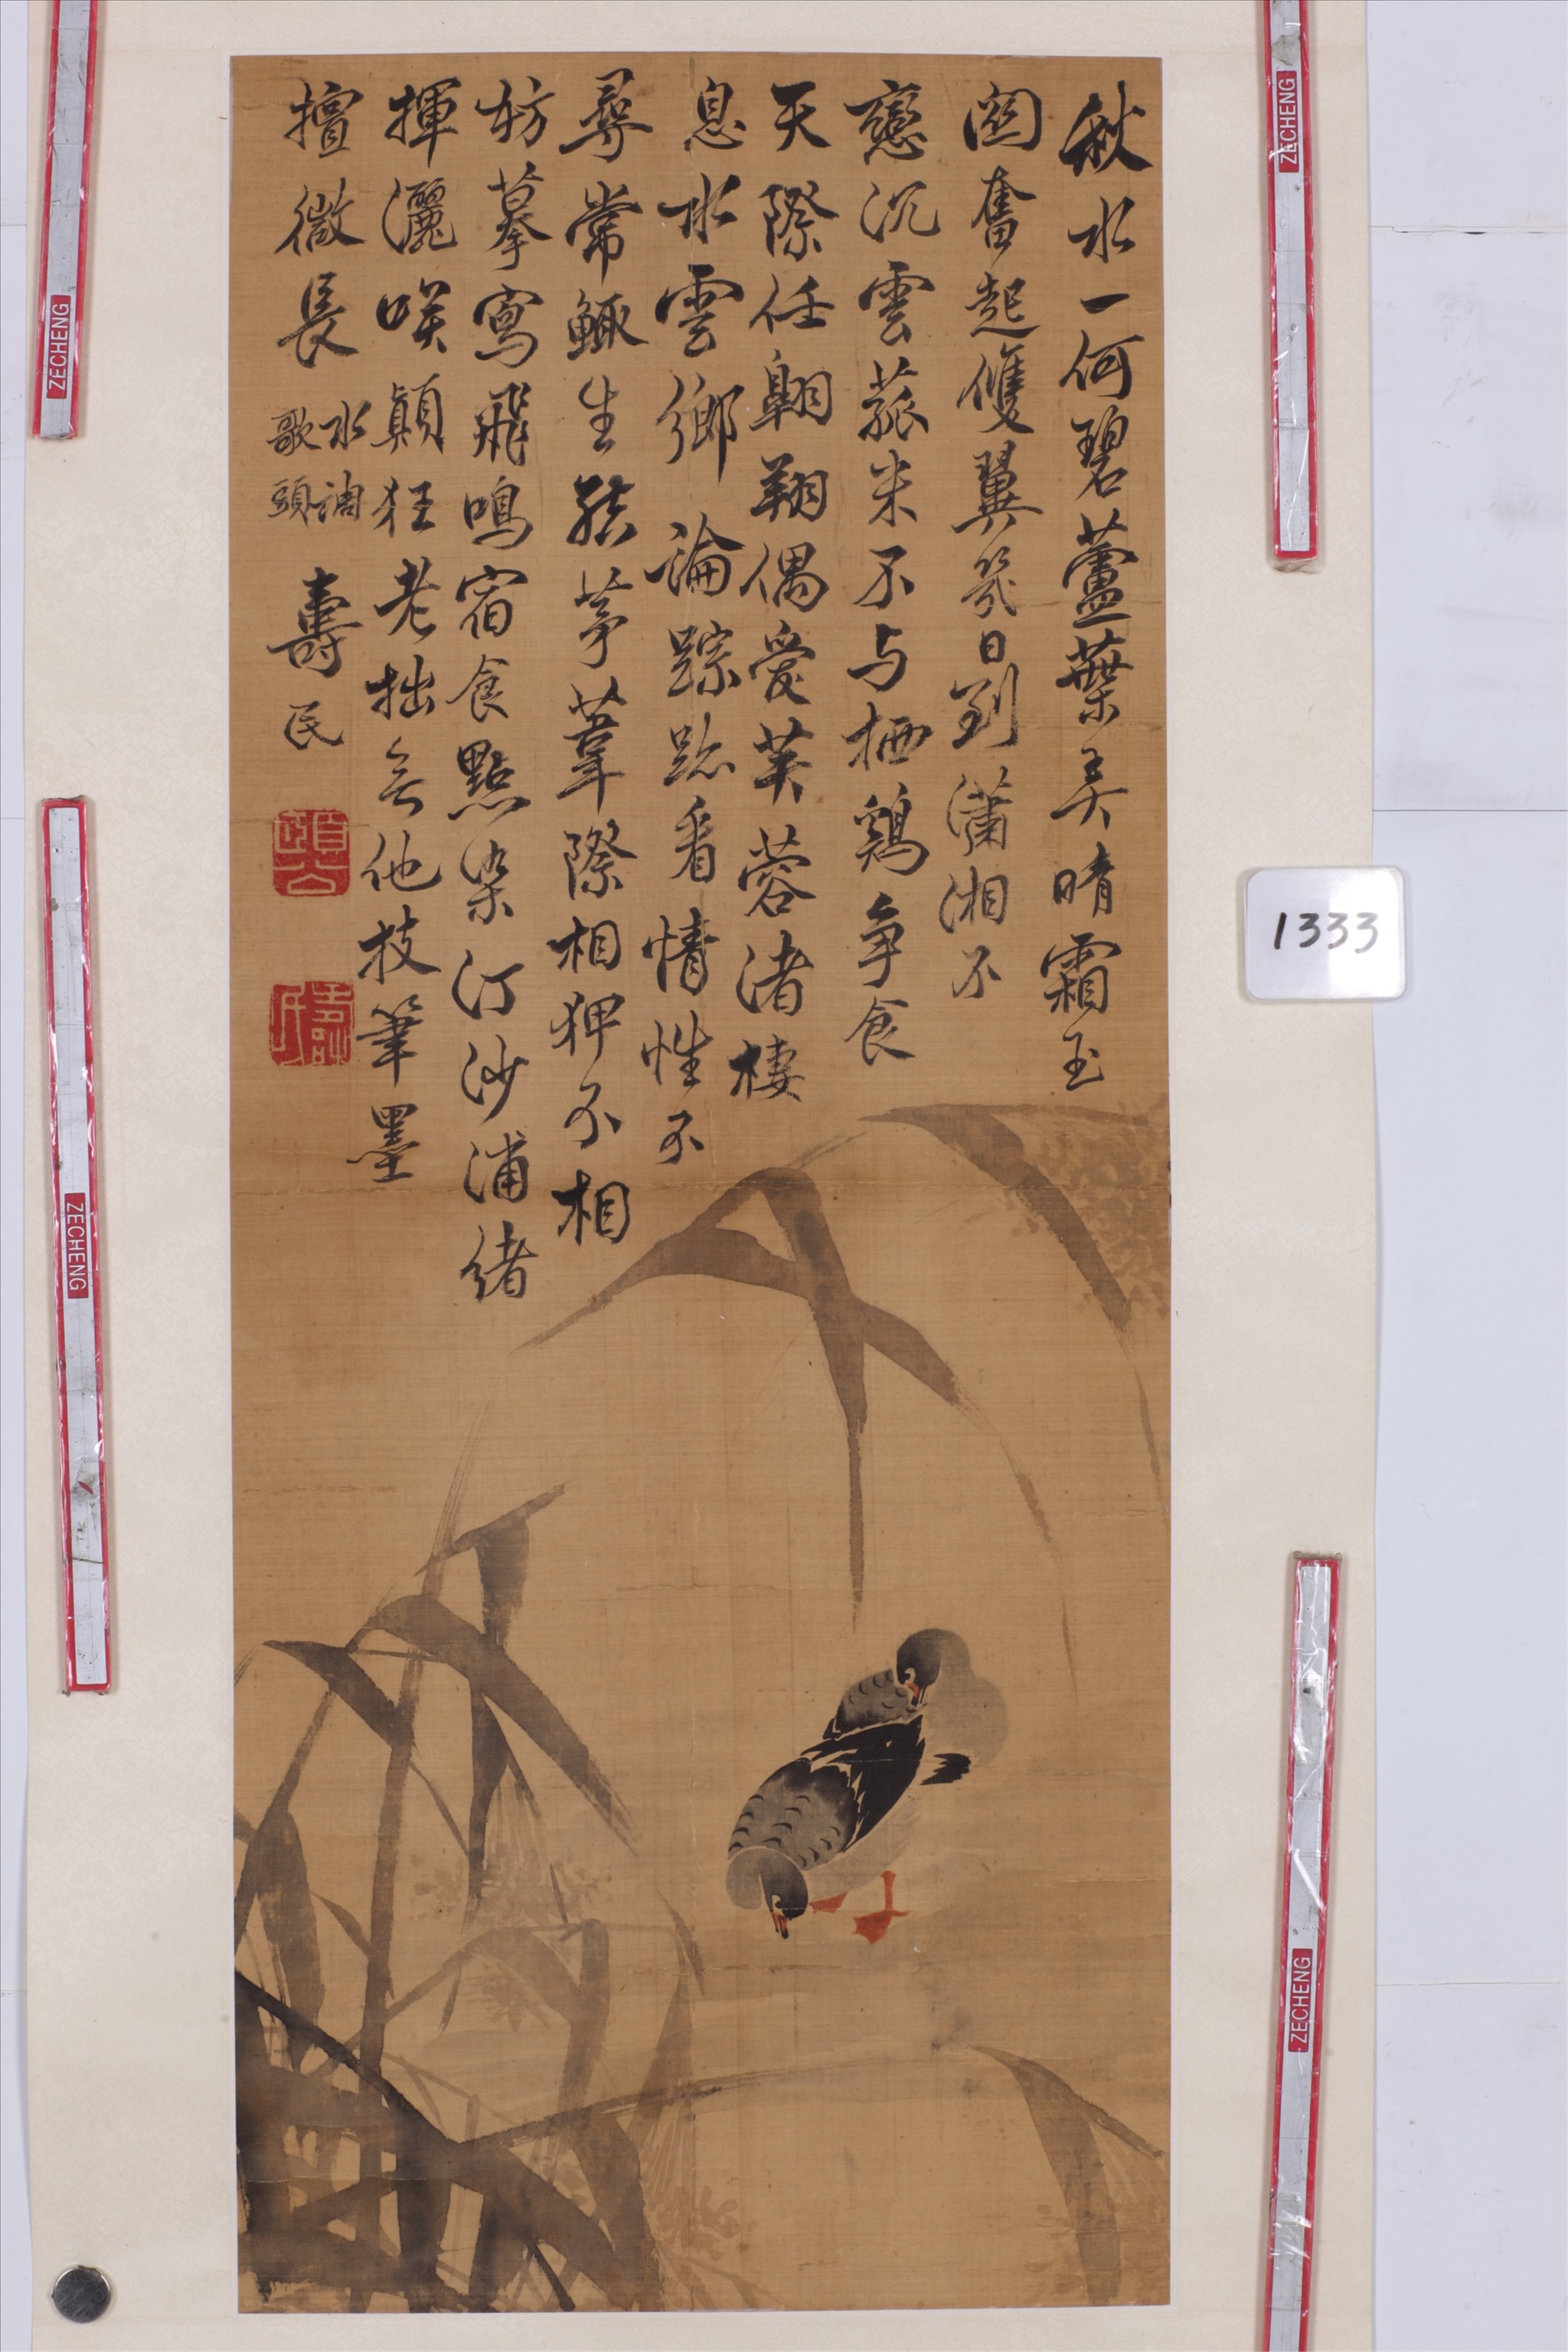 秋水一何碧蘆葉美晴霜玉
關奮起雙翼幾日到瀟湘不
戀沉雲菰米不与栖鷄争食
天際任翱翔偶愛芙蓉渚棲
息水雲鄉論踪跡看情性不
尋常鯫生結茅葦際相狎不相
妨摹寫飛鳴宿食點染汀沙浦緒
揮灑咲顛狂老拙無他技筆墨
擅微長
水調
歌頭
壽民
頤公
壽民
1333
ZECHENG
ZECHENG
ZECHENG
ZECHENG